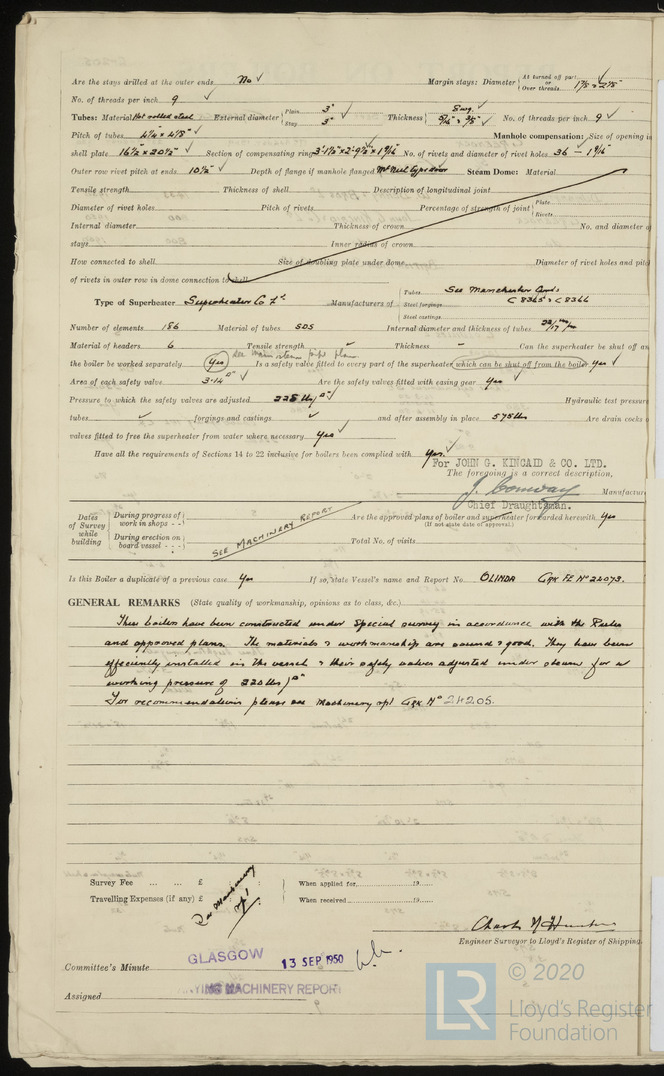 Are the stays drilled at the outer ends No ✓ Margin stays: Diameter { At turned off part or Over threads 1⅞ × 2⅛ ✓
No. of threads per inch 9 ✓
Tubes: Material Hot rolled steel External diameter { Plain 3" Stay 3" ✓ Thickness { 8wg. 5/16 & 3/8 ✓ No. of threads per inch 9 ✓
Pitch of tubes 4 × 4⅛ ✓ Manhole compensation: Size of opening in
shell plate 16½ × 20½ ✓ Section of compensating ring 3'-1½ × 2'-9½ × 1 No. of rivets and diameter of rivet holes 36 — 1
Outer row rivet pitch at ends 10½ ✓ Depth of flange if manhole flanged McNeil type door Steam Dome: Material
Tensile strength Thickness of shell Description of longitudinal joint
Diameter of rivet holes Pitch of rivets Percentage of strength of joint { Plate Rivets
Internal diameter Thickness of crown No. and diameter of
stays Inner radius of crown
How connected to shell Size of doubling plate under dome Diameter of rivet holes and pitch
of rivets in outer row in dome connection to shell
Type of Superheater Superheater Co Ld. Manufacturers of { Tubes Steel forgings Steel castings See Manchester Certs C 8365 & C 8366
Number of elements 186 Material of tubes SDS Internal diameter and thickness of tubes 22/17 m/m
Material of headers 6 Tensile strength Thickness Can the superheater be shut off an
see main steam pipe plan
the boiler be worked separately Yes Is a safety valve fitted to every part of the superheater which can be shut off from the boiler Yes ✓
Area of each safety valve 3.14 □" ✓ Are the safety valves fitted with easing gear Yes ✓
Pressure to which the safety valves are adjusted 225 lbs/□" ✓ Hydraulic test pressure
tubes ✓ forgings and castings ✓ and after assembly in place 575 lbs Are drain cocks o
valves fitted to free the superheater from water where necessary Yes ✓
Have all the requirements of Sections 14 to 22 inclusive for boilers been complied with Yes. ✓
For JOHN G. KINCAID & CO. LTD.
The foregoing is a correct description,
J. Conway Manufacture
Chief Draughtsman.
Dates of Survey while building { During progress of work in shops - - During erection on board vessel - - -
SEE MACHINERY REPORT
Are the approved plans of boiler and superheater forwarded herewith Yes
(If not state date of approval.)
Total No. of visits
Is this Boiler a duplicate of a previous case Yes If so, state Vessel's name and Report No. OLINDA Grk FE No 24073.
GENERAL REMARKS (State quality of workmanship, opinions as to class, &c.)
These boilers have been constructed under Special survey in accordance with the Rules
and approved plans. The materials & workmanship are sound & good. They have been
efficiently installed in the vessel & their safety valves adjusted under steam for a
working pressure of 220 lbs/□"
For recommendations please see Machinery rpt Grk No 24205.
Survey Fee ... ... £ : : When applied for 19
Travelling Expenses (if any) £ : : When received 19
See Machinery rpt
Engineer Surveyor to Lloyd's Register of Shipping.
GLASGOW 13 SEP 1950
Committee's Minute
Assigned
MACHINERY REPORT
LR © 2020
Lloyd's Register
Foundation